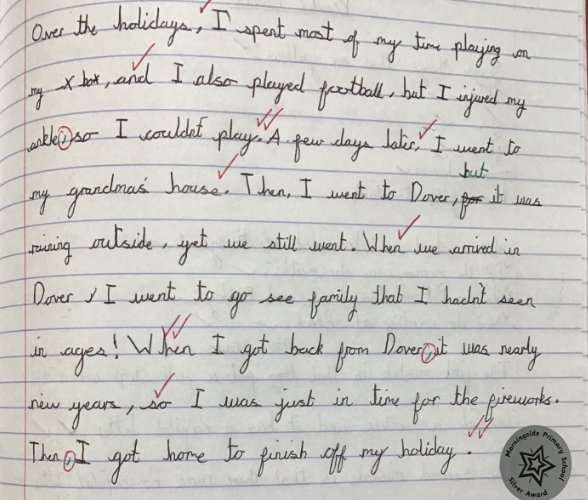 Over the holidays, I spent most of my time playing on
my x box, and I also played football, but I injured my
ankle, so I couldn't play. A few days later, I went to
but
my grandma's house. Then, I went to Dover, for it was
raining outside, yet we still went. When we arrived in
Dover, I went to go see family that I hadn't seen
in ages! When I got back from Dover, it was nearly
new years, so I was just in time for the fireworks.
Then, I got home to finish off my holiday.
Morningside Primary School
Silver Award